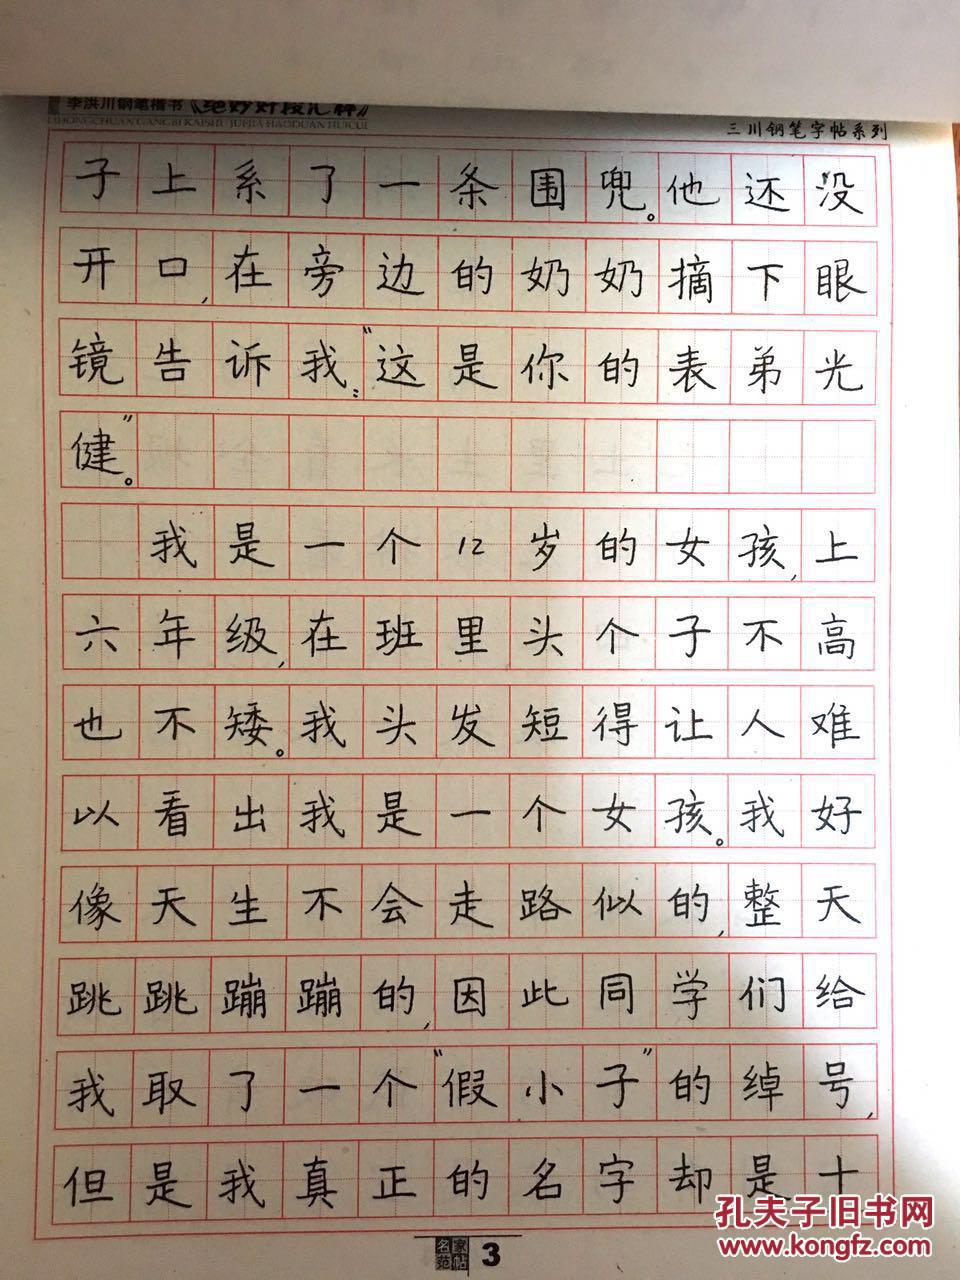 李洪川钢笔楷书《绝妙好段汇粹》
LIHONGCHUAN GANGBI KAISHU JUEJIA HAODUAN HUICUI
三川钢笔字帖系列
子上系了一条围兜。他还没
开口,在旁边的奶奶摘下眼
镜告诉我:“这是你的表弟光
健”。
我是一个12岁的女孩,上
六年级,在班里头个子不高
也不矮。我头发短得让人难
以看出我是一个女孩。我好
像天生不会走路似的,整天
跳跳蹦蹦的,因此同学们给
我取了一个“假小子”的绰号,
但是我真正的名字却是十
名家范帖 3
孔夫子旧书网
www.kongfz.com